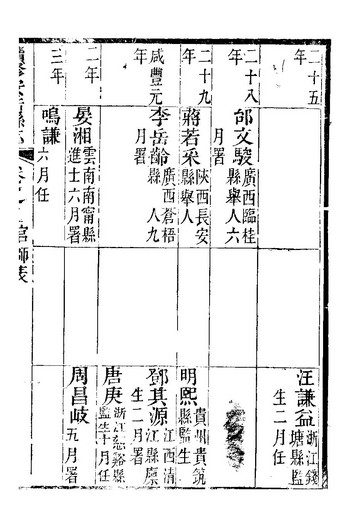 二十五
年
汪謙益 浙江錢
塘縣監
生二月任
二十八
年
邰文駿 廣西臨桂
縣舉人六
月署
二十九
年
蔣若采 陝西長安
縣舉人
明熙 貴州貴筑
縣監生
咸豐元
年
李岳齡 廣西蒼梧
縣人九
月署
鄧其源 江西清
江縣廩
生二月署
唐庚 浙江慈谿縣
監生十月任
二年
晏湘 雲南南甯縣
進士六月署
周昌岐 五月署
三年
鳴謙 六月任
官師表